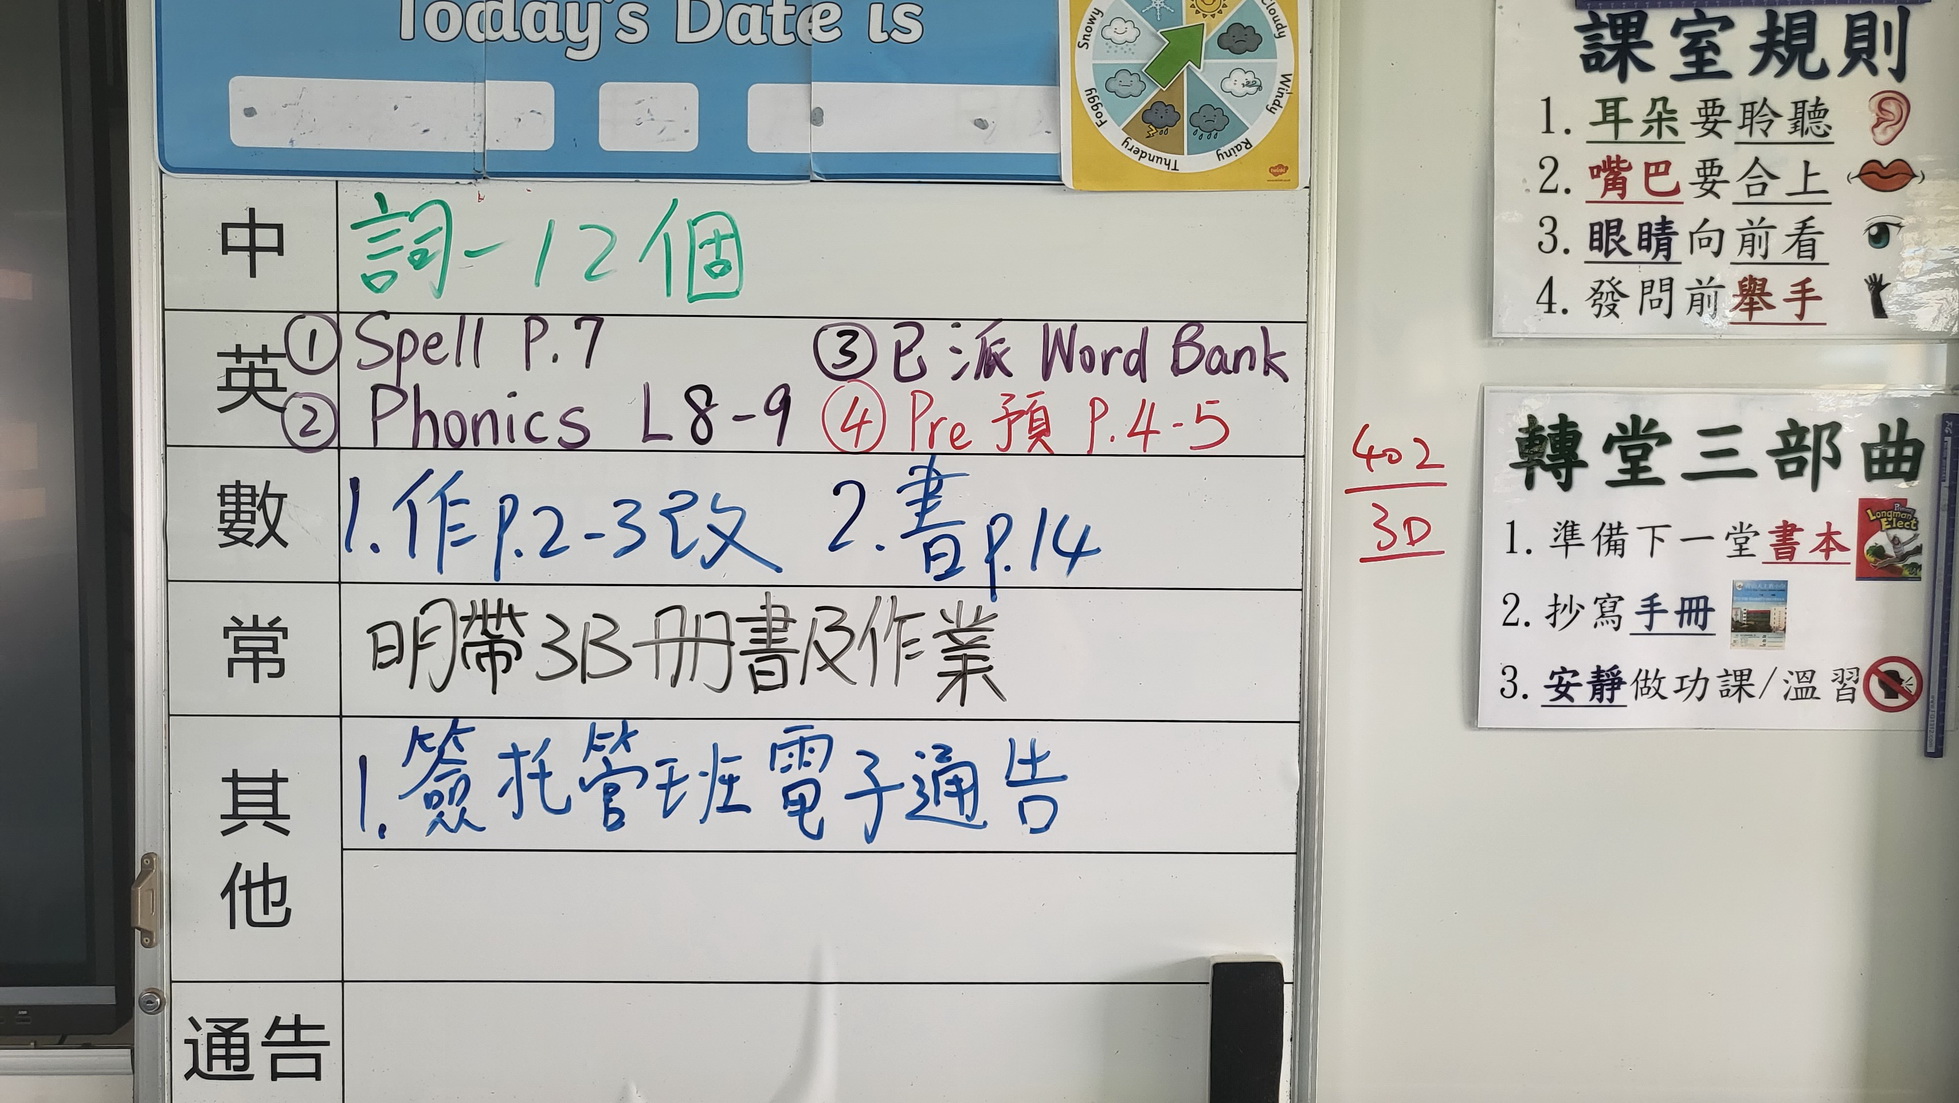 Today's Date is
Snowy
Cloudy
Windy
Rainy
Thundery
Foggy
中
詞-12個
英
① Spell P.7
② Phonics L8-9
③ 已派 Word Bank
④ Pre 預 P.4-5
數
1. 作 P.2-3 改 2. 書 P.14
常
明帶3B冊書及作業
其他
1. 簽托管班電子通告
通告
402
3D
課室規則
1. 耳朵要聆聽
2. 嘴巴要合上
3. 眼睛向前看
4. 發問前舉手
轉堂三部曲
1. 準備下一堂書本
Longman Elect
2. 抄寫手冊
3. 安靜做功課/溫習